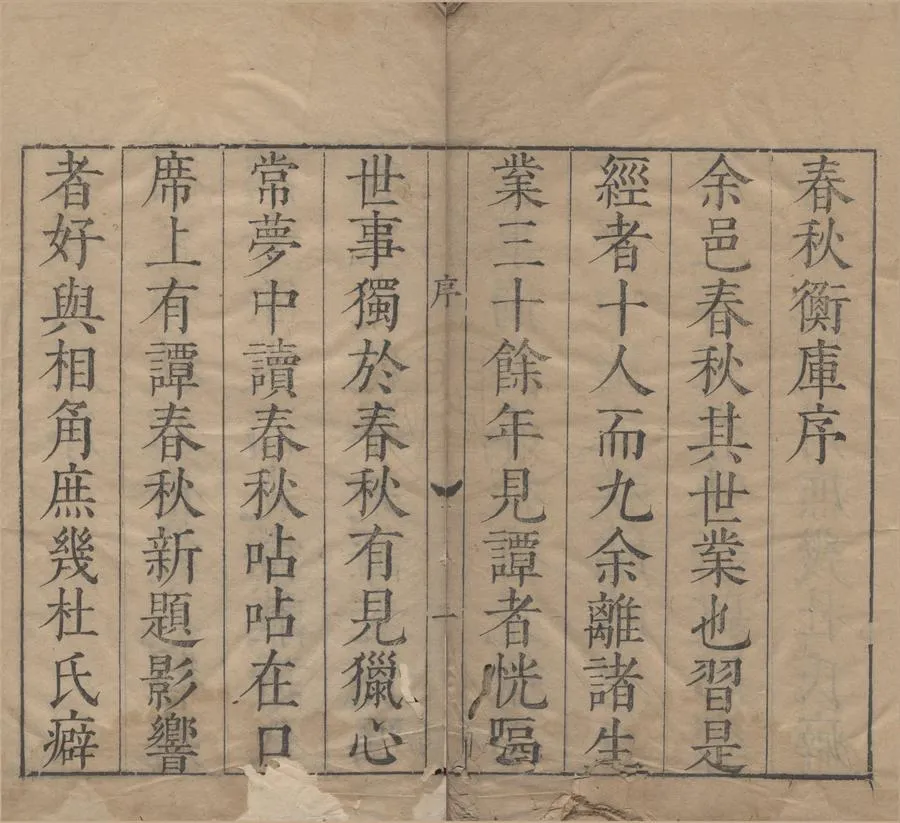 春秋衡庫序
余邑春秋其世業也習是
經者十人而九余離諸生
業三十餘年見譚者恍
序 一
世事獨於春秋有見獵心
常夢中讀春秋呫呫在口
席上有譚春秋新題影響
者好與相角庶幾杜氏癖